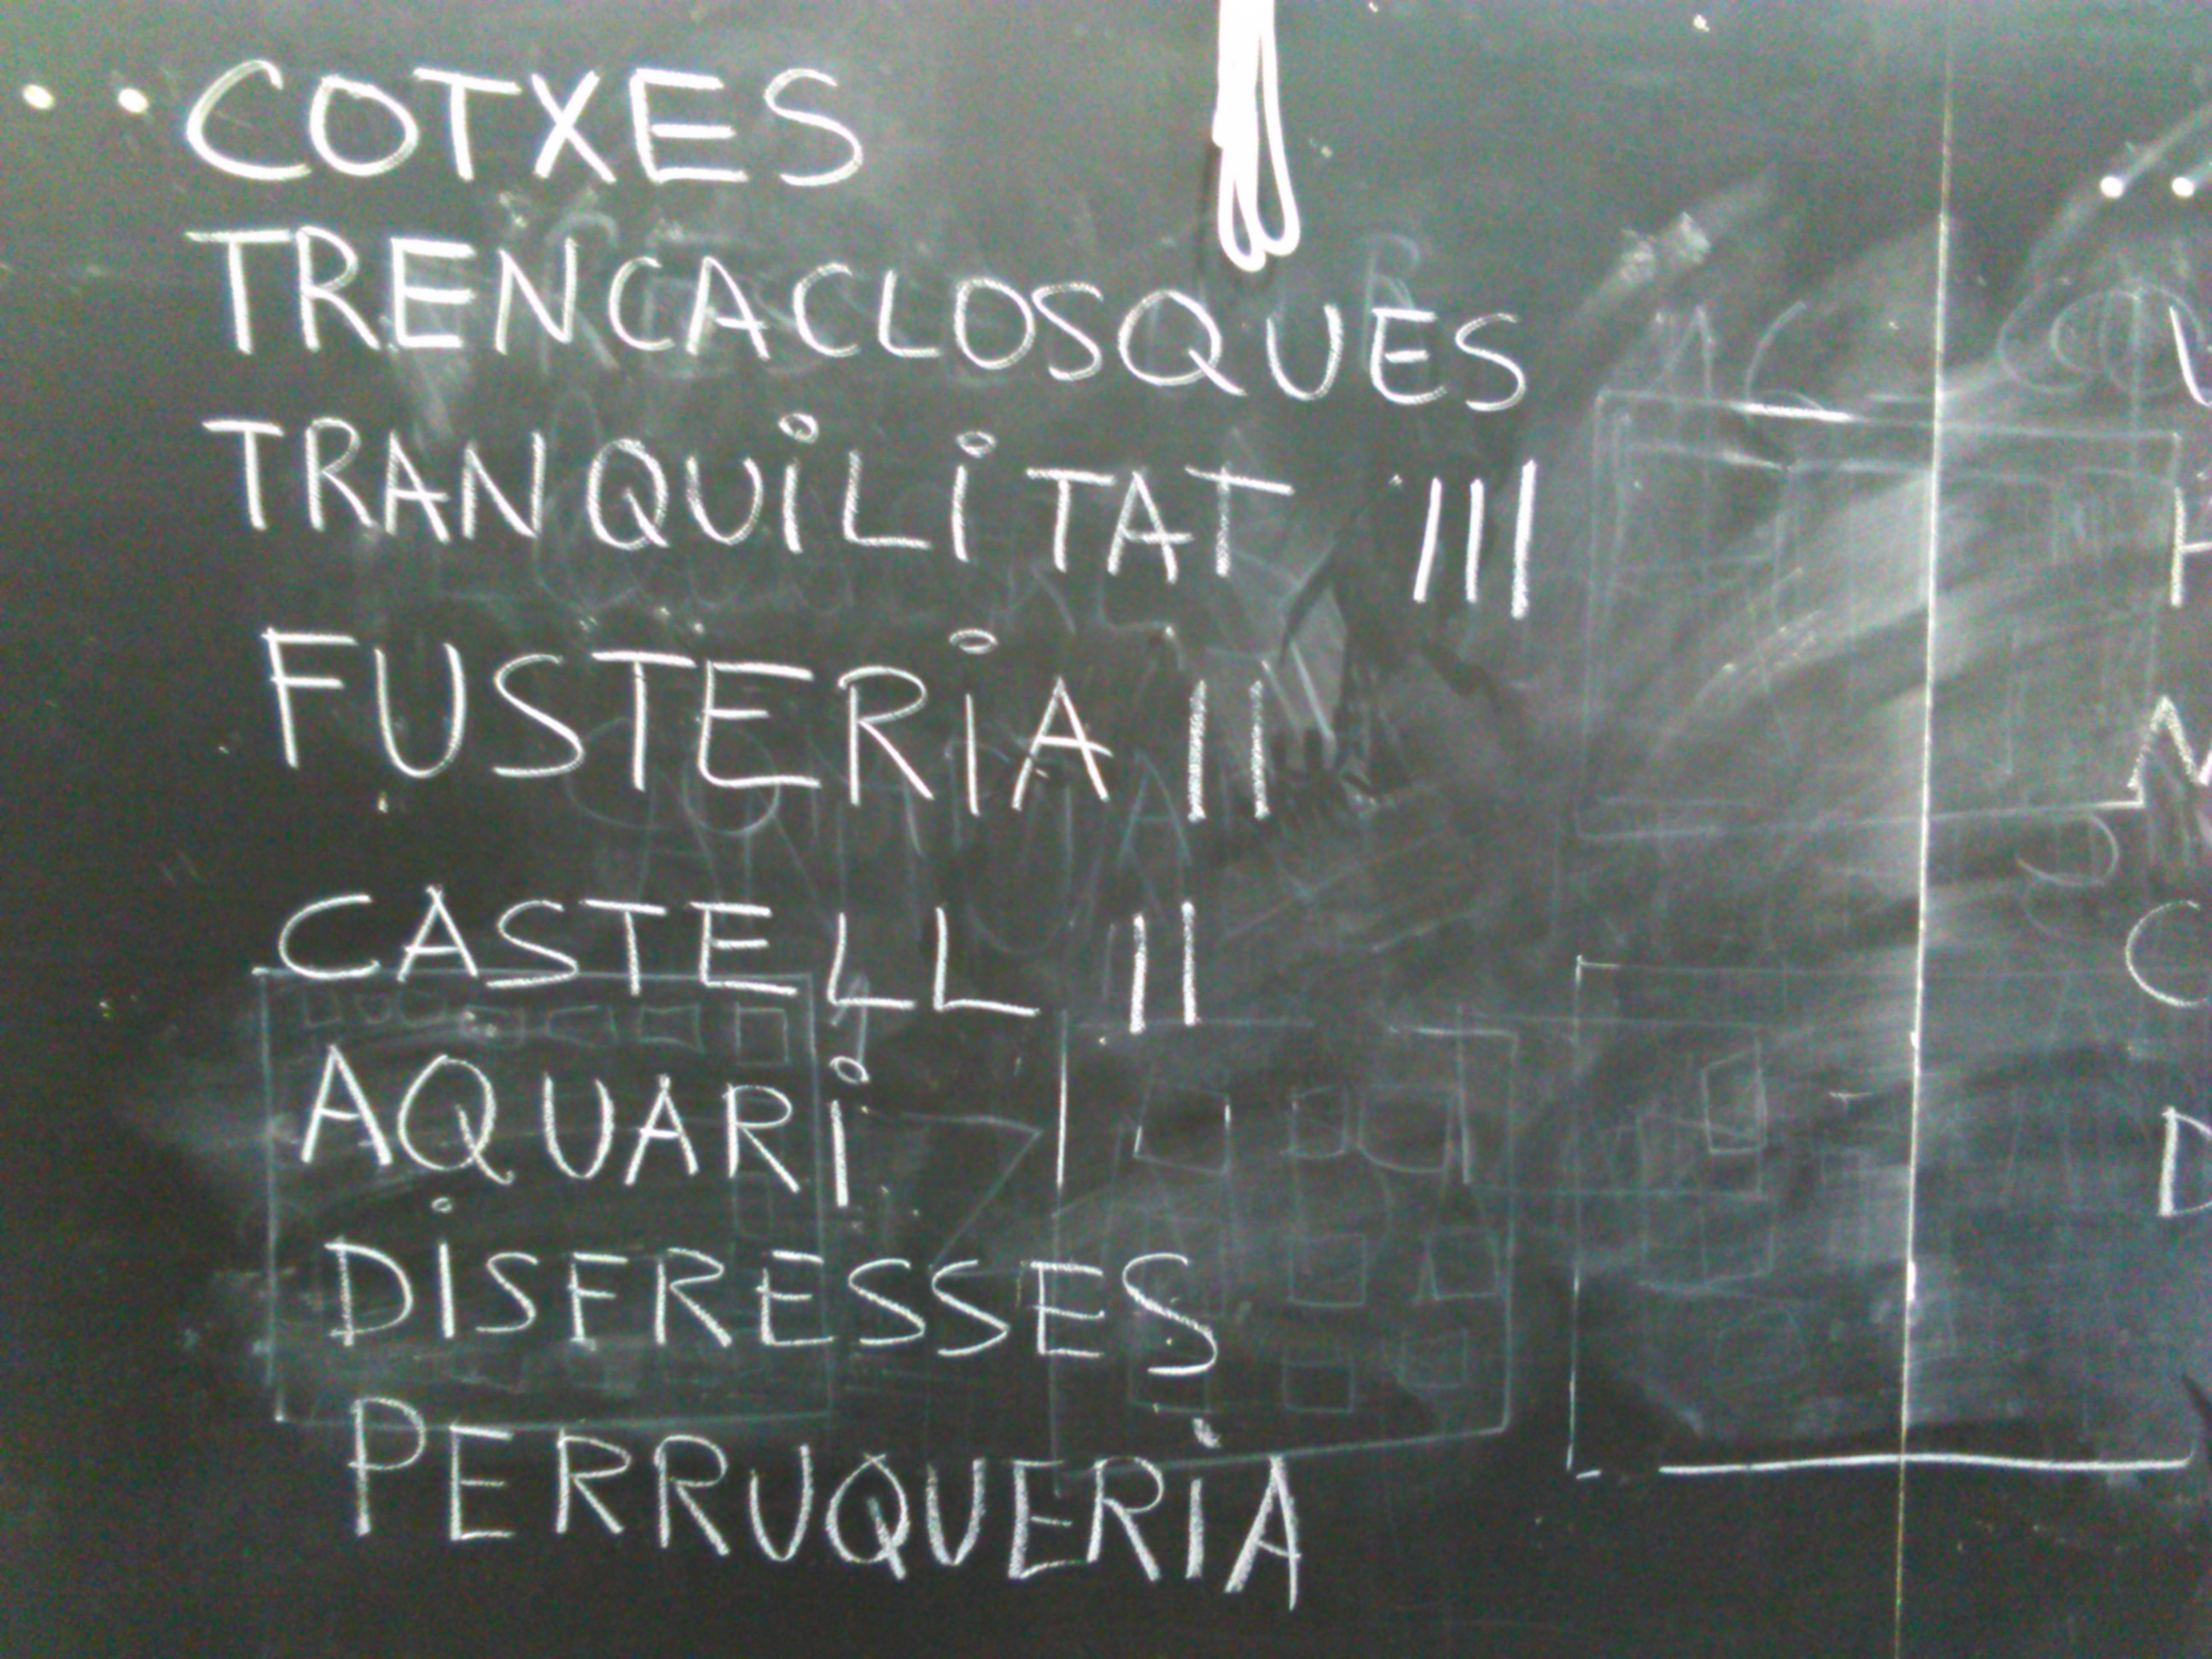 COTXES
TRENCACLOSQUES
TRANQUiLiTAT III
FUSTERiA II
CASTELL II
AQUARi
DiSFRESSES
PERRUQUERiA